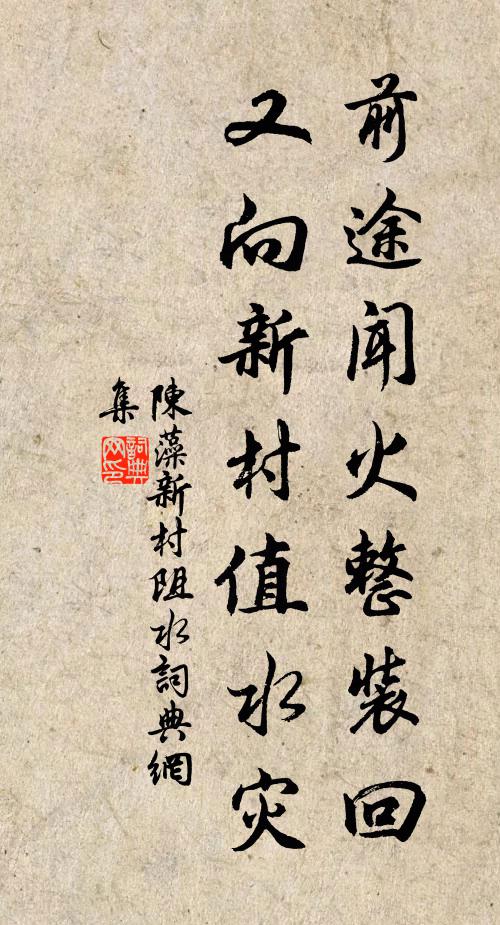 前途闻火整装回
又向新村值水灾
陳藻新村阻水詞典網
集
詞典
网印